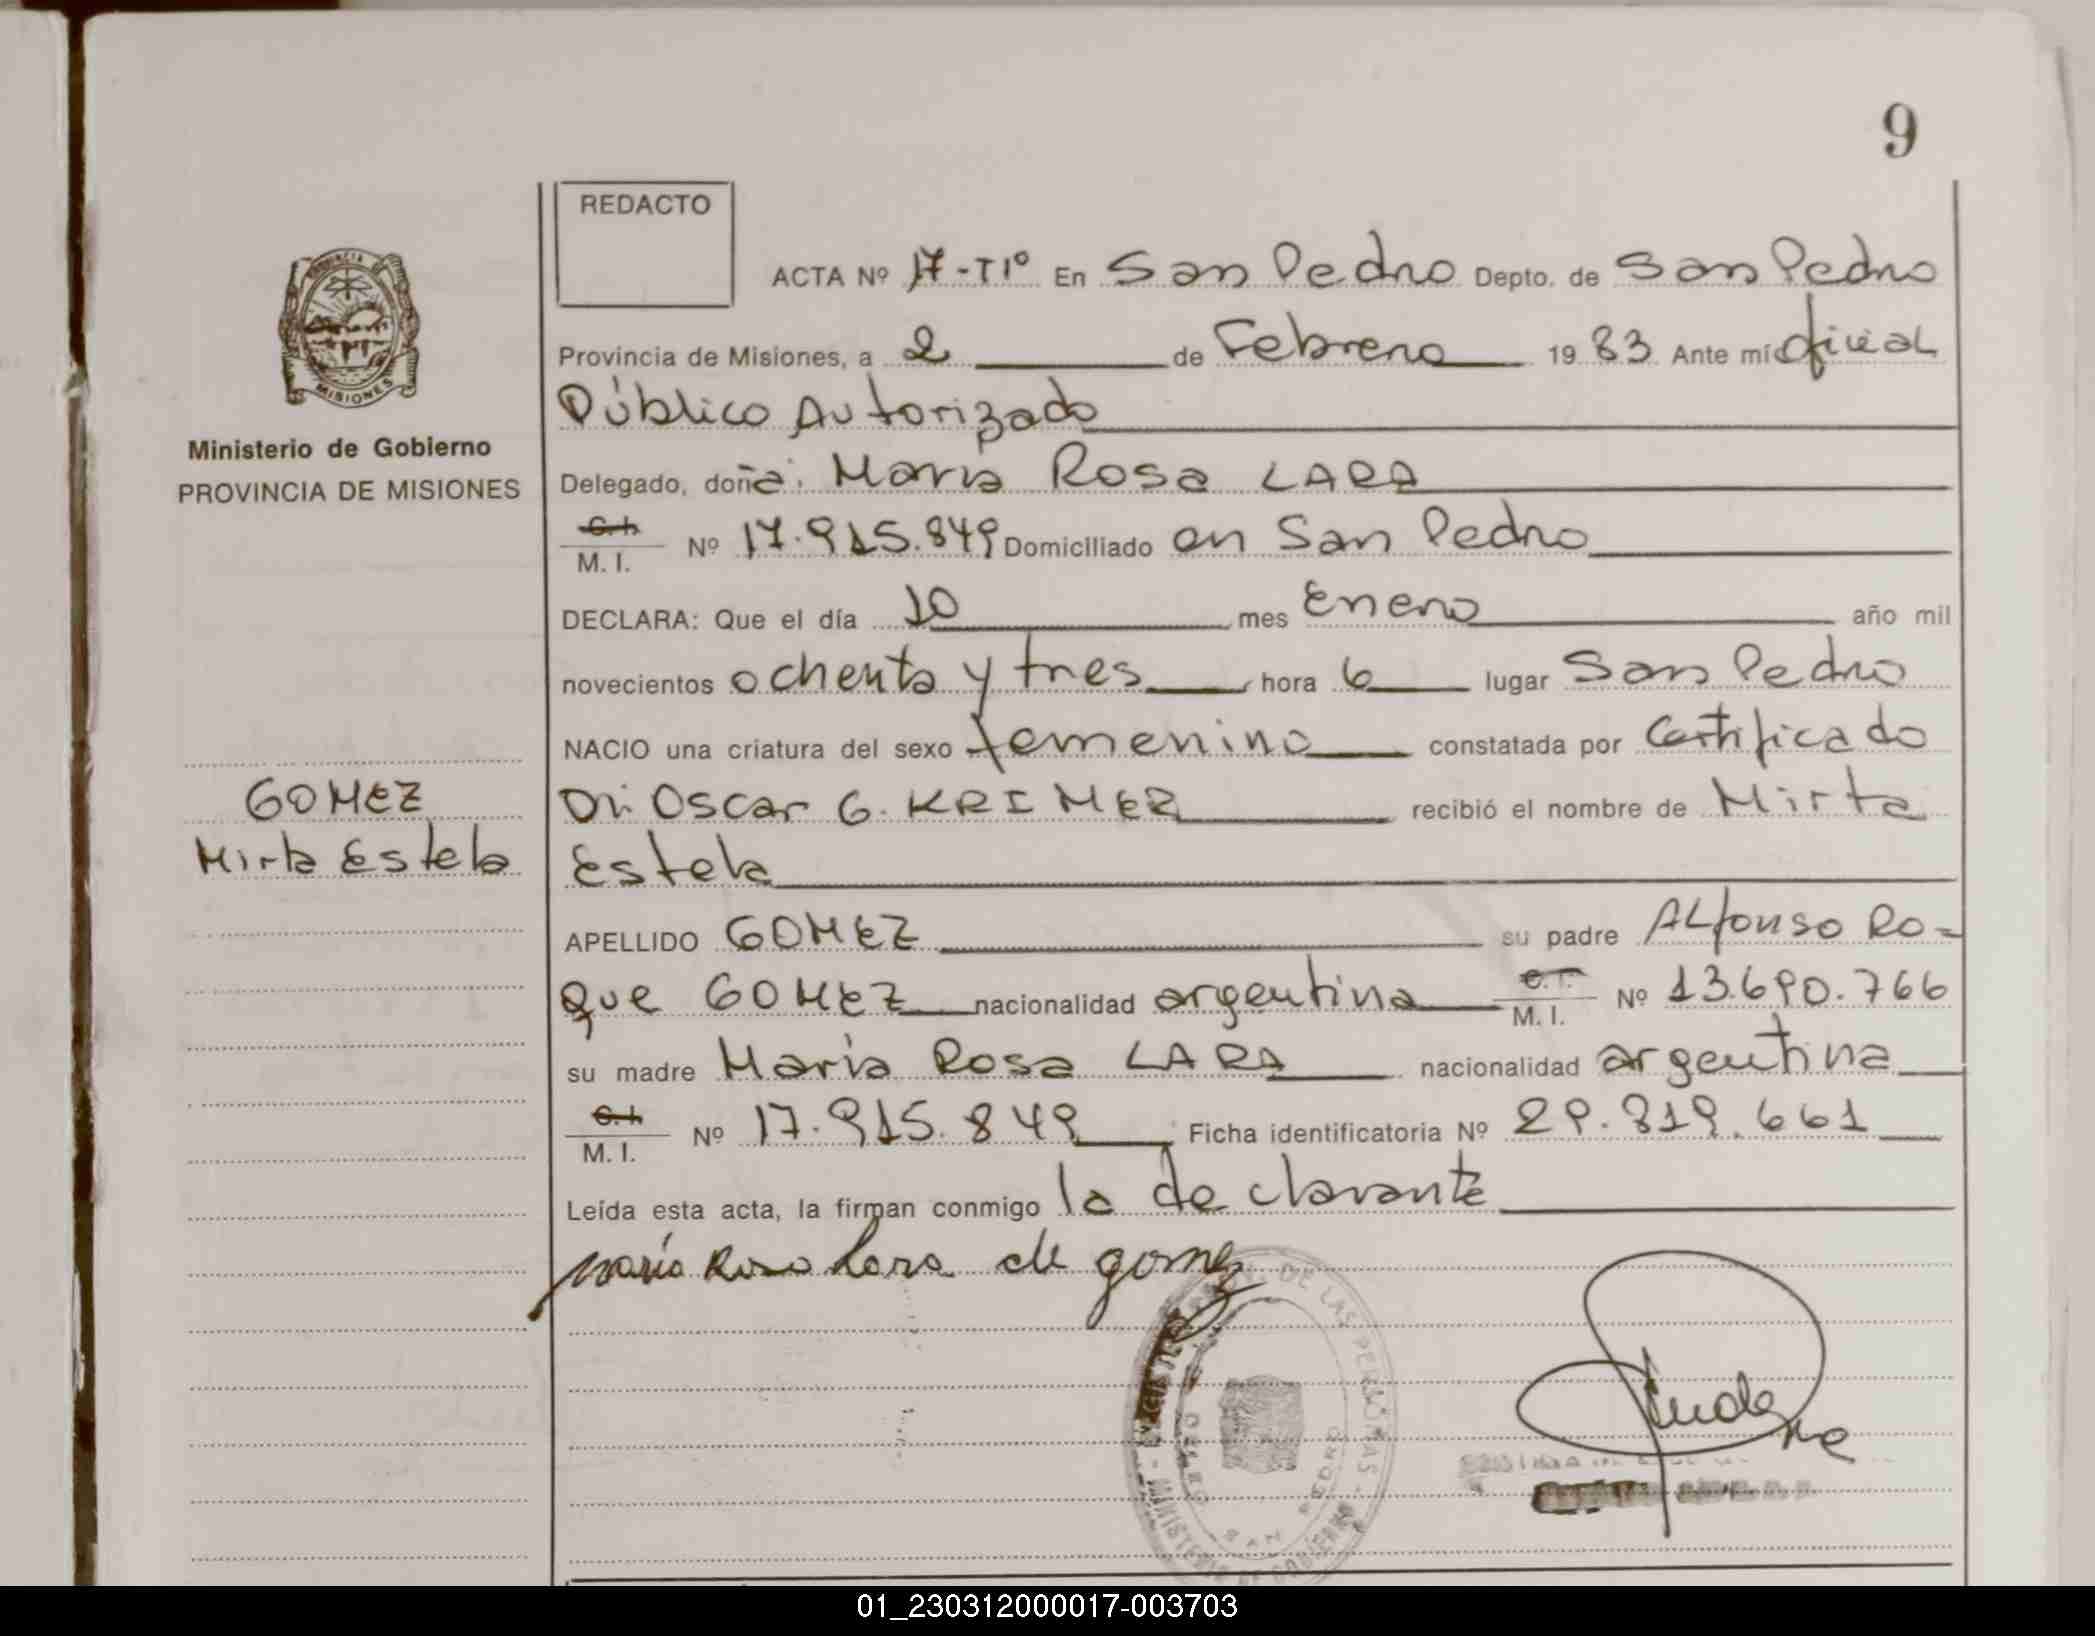 9
REDACTO
ACTA Nº 17-TIº En San Pedro Depto. de San Pedro
Provincia de Misiones, a 2 de Febrero 1983 Ante mí oficial
Público Autorizado
Ministerio de Gobierno
PROVINCIA DE MISIONES
MISIONES
Delegado, doña: María Rosa LARA
C.I.
M. I. Nº 17.915.849 Domiciliado en San Pedro
DECLARA: Que el día 10 mes Enero año mil
novecientos ochenta y tres hora 6 lugar San Pedro
NACIO una criatura del sexo femenino constatada por Certificado
Dr. Oscar G. KRIMER recibió el nombre de Mirta
Estela
GOMEZ
Mirta Estela
APELLIDO GOMEZ su padre ALfonso Ro-
que GOMEZ nacionalidad argentina C.I.
M. I. Nº 13.690.766
su madre María Rosa LARA nacionalidad argentina
C.I.
M. I. Nº 17.915.849 Ficha identificatoria Nº 29.819.661
Leída esta acta, la firman conmigo la declarante
María Rosa Lara de gomez
DE LAS PERSONAS - MINISTERIO DE GOBIERNO
SAN PEDRO
01_230312000017-003703